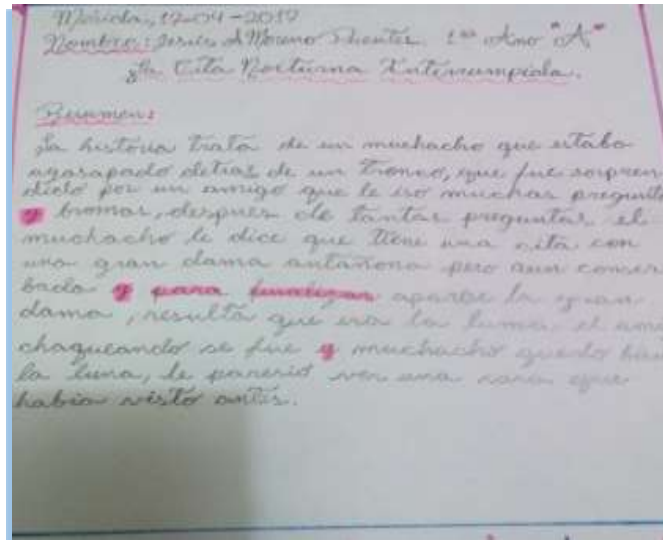 Mérida, 17-04-2017
Nombre: Jesús A Moreno Puentes. 1er Año "A"
La Cita Nocturna Interrumpida.
Resumen:
La historia trata de un muchacho que estaba
agasapado detras de un Tronco, que fue sorpren
dido por un amigo que le iso muchas pregunta
y bromas, despues de tantas preguntas el
muchacho le dice que tiene una cita con
una gran dama antañona pero aun conser
bada y para finalizar aparse la gran
dama, resulta que era la luna el ami
chaqueando se fue y muchacho quedo
la luna, le parerio ver una cara que
habia visto antes.